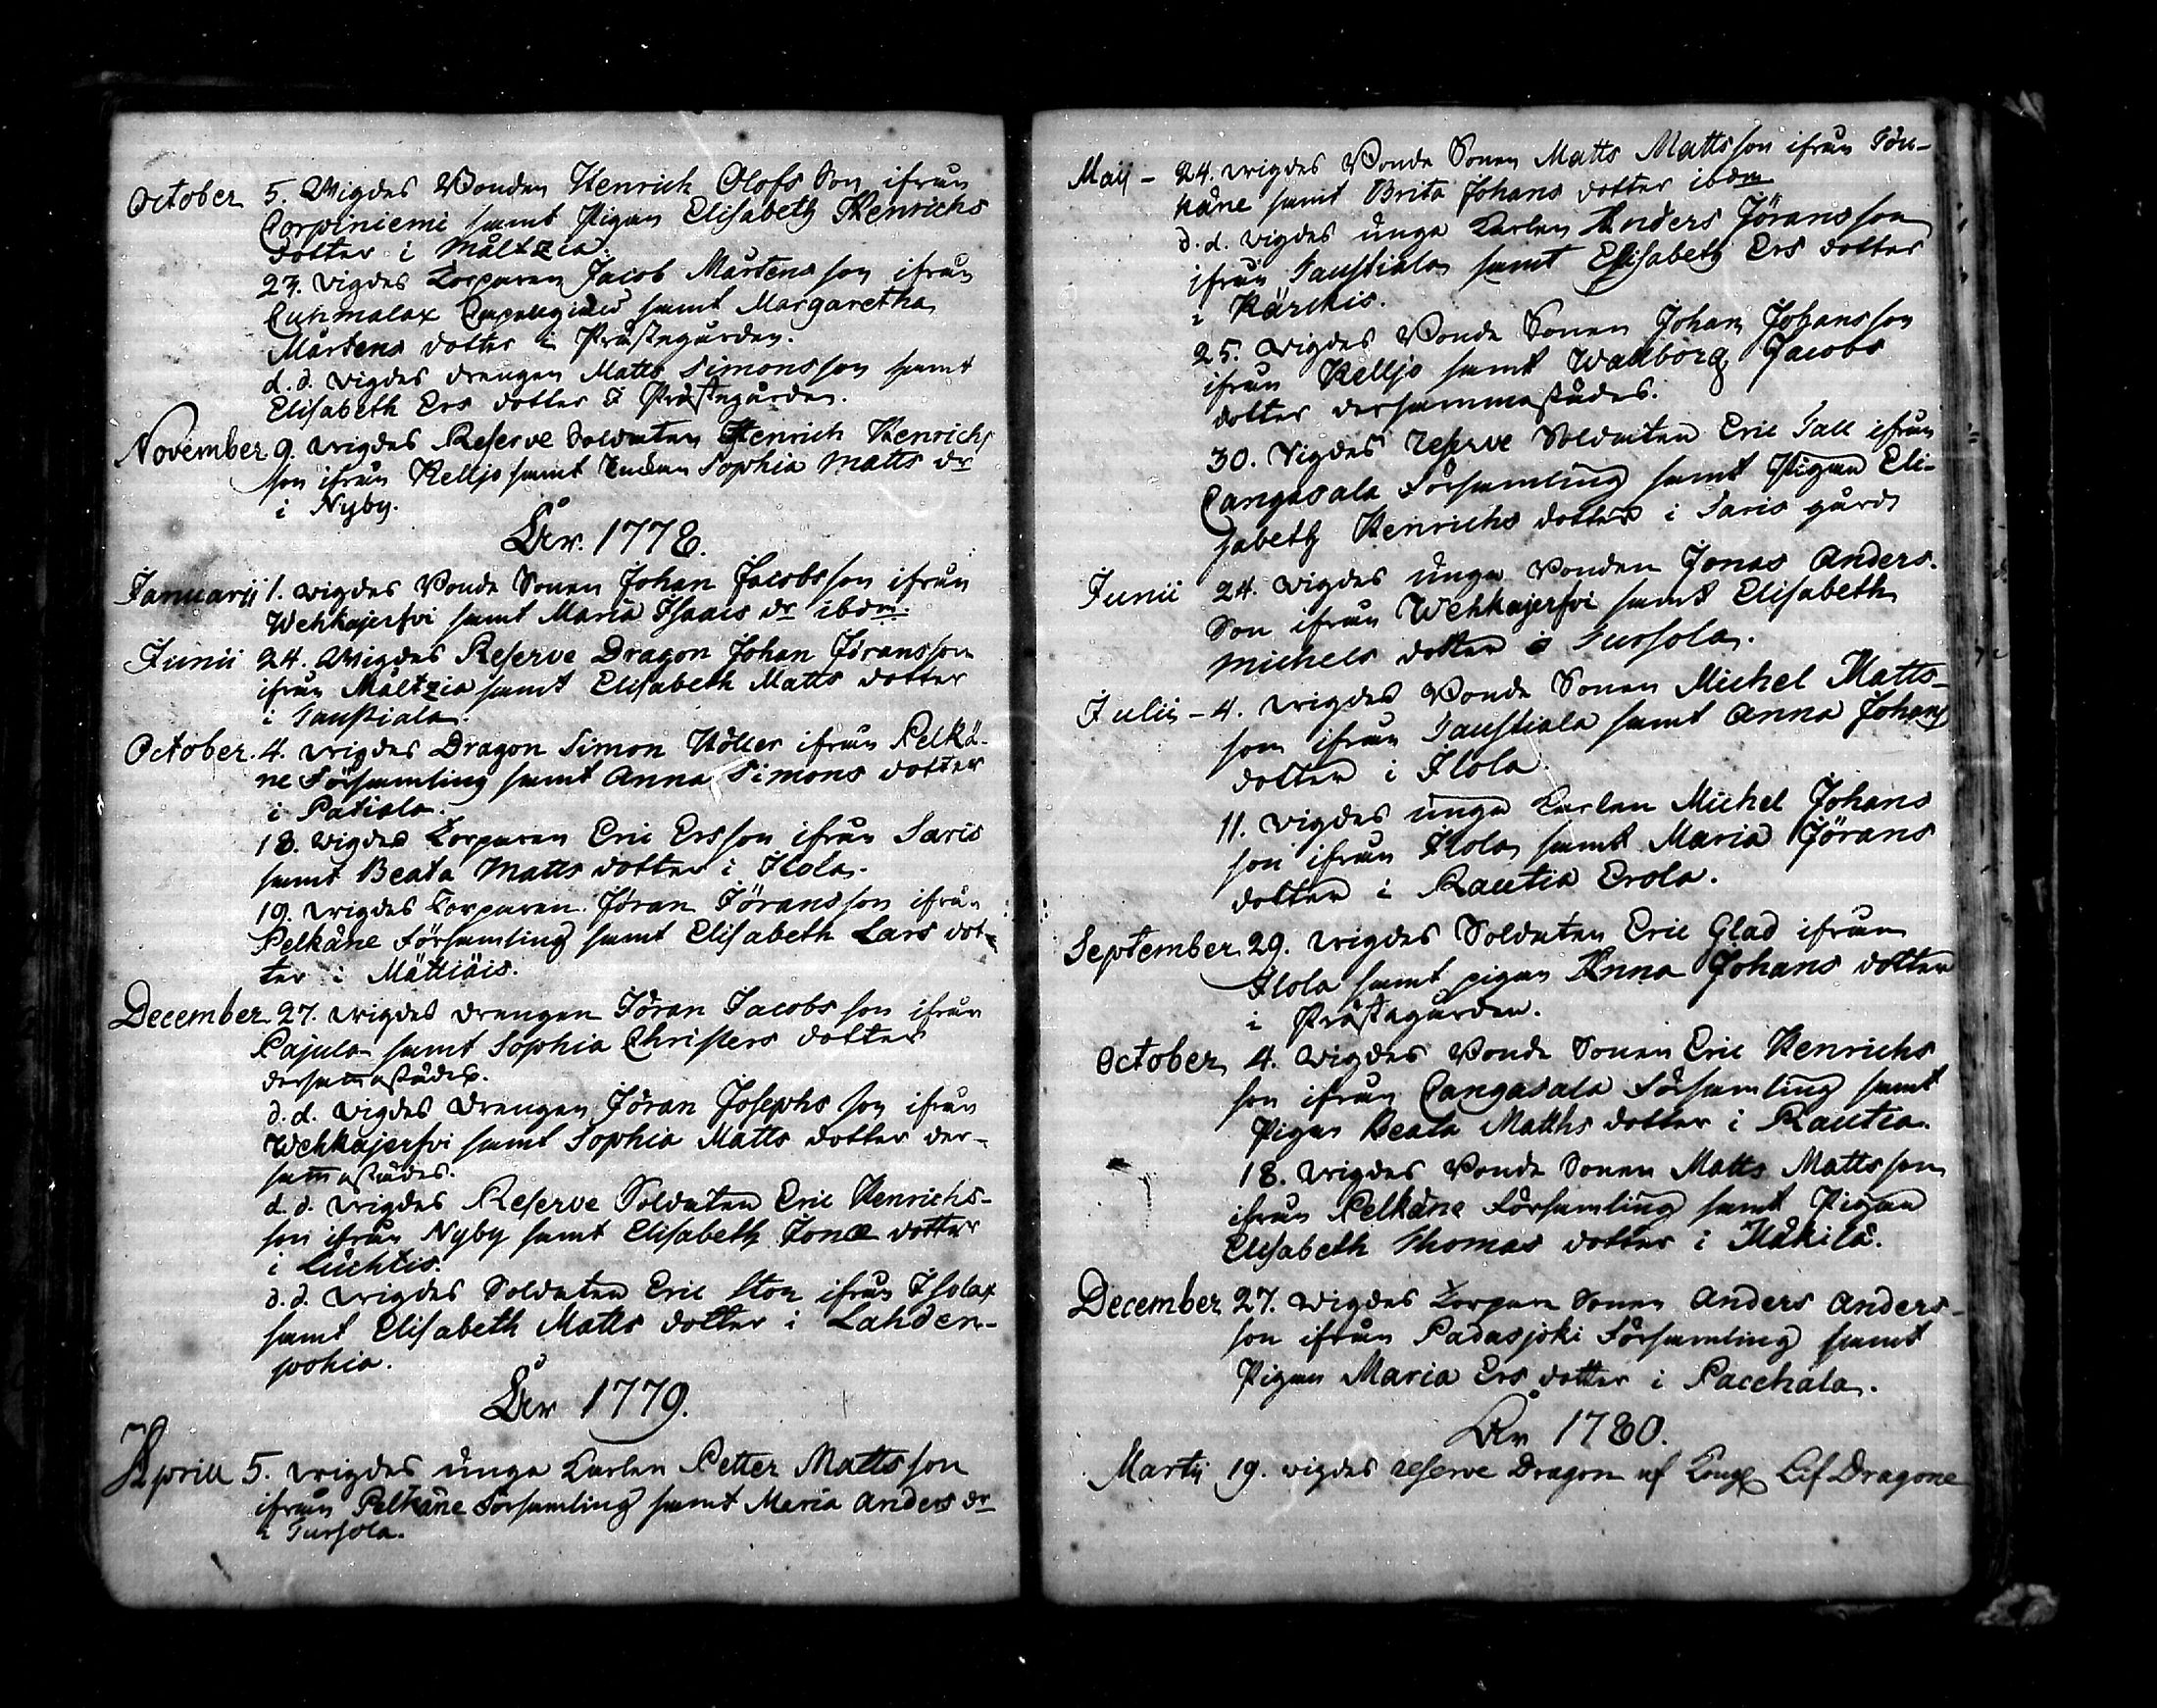 October 5. Wigdes Bonden Henrich Olofs Son ifrån
Corpiniemi samt Pigan Elisabeth Henrichs
dotter i Måltzia.
27. vigdes Torparen Jacob Mårtens son ifrån
Cuhmalax samt Margaretha
Mårtens dotter i Prästegården.
d. d. vigdes drengen Matts Simons son samt
Elisabeth Ers dotter i Prästegården.
November 9. vigdes Reserve Soldaten Henrich Henrichs
son ifrån Kelljo samt Enckan Sophia Matts dr
i Nyby.
År 1778.
Januarii 1. vigdes Bonde Sonen Johan Jacobs son ifrån
Wehkajerfvi samt Maria Isaacs dr ibdm.
Junii 24. Wigdes Reserve Dragon Johan Jöransson
ifrån Måltzia samt Elisabeth Matts dotter
i Taustiala.
October. 4. vigdes Dragon Simon Höller ifrån Pelkä-
ne Församling samt Anna Simons dotter
i Patiala.
18. vigdes Torparen Eric Ersson ifrån Saris
samt Beata Matts dotter i Ilola.
19. vigdes Torparen Jöran Jöransson ifrån
Pelkäne Församling samt Elisabeth Lars dot-
ter i Mättiäis.
December 27. vigdes drengen Jöran Jacobs son ifrån
Pajula samt Sophia Christers dotter
dersamastädes.
d. d. vigdes Drengen Jöran Josephs son ifrån
Wehkajerfvi samt Sophia Matts dotter der-
samastädes.
d. d. vigdes Reserve Soldaten Eric Henrichs-
son ifrån Nyby samt Elisabeth Jonæ dotter
i Luihtis.
d. d. vigdes Soldaten Eric Stor ifrån Isolax
samt Elisabeth Matts dotter i Lahden-
pohia.
År 1779.
Aprill 5. vigdes unga Karlen Petter Matts son
ifrån Pelkäne Församling samt Maria Anders dr
i Tursola.
Maij - 24. vigdes Bonde Sonen Matts Matts son ifrån Pän-
näne samt Brita Johans dotter ibdm
d. d. vigdes unga Karlen Anders Jöransson
ifrån Taustiala samt Elisabeth Ers dotter
i Kärckis.
25. vigdes Bonde Sonen Johan Johansson
ifrån Kelljo samt Wallborg Jacobs
dotter dersammastädes.
30. Vigdes reserve Soldaten Eric Tall ifrån
Cangasala Församling samt Pigan Eli-
sabeth Henrichs dotter i Saris gård
Junii 24. vigdes unga Bonden Jonas Anders.
Son ifrån Wehkajerfvi samt Elisabeth
Michels dotter i Tursola.
Julii - 4. vigdes Bonde Sonen Michel Matts-
son ifrån Taustiala samt Anna Johans
dotter i Ilola
11. vigdes unga Karlen Michel Johans
son ifrån Ilola samt Maria Jörans
dotter i Rautia Erola.
September 29. vigdes Soldaten Eric Glad ifrån
Ilola samt pigan Anna Johans dotter
i Prästagården.
October 4. vigdes Bonde Sonen Eric Henrichs
son ifrån Cangasala Församling samt
Pigan Beata Matths dotter i Rautia.
18. vigdes Bonde Sonen Matts Matts son
ifrån Pelkäne Församling samt Pigan
Elisabeth Thomas dotter i Häkilä.
December 27. vigdes Torpare Sonen Anders Anders-
son ifrån Padasjoki Församling samt
Pigan Maria Ers dotter i Pacchala.
År 1780.
Martii 19. vigdes reserve Dragon af Kongl Lif Dragone